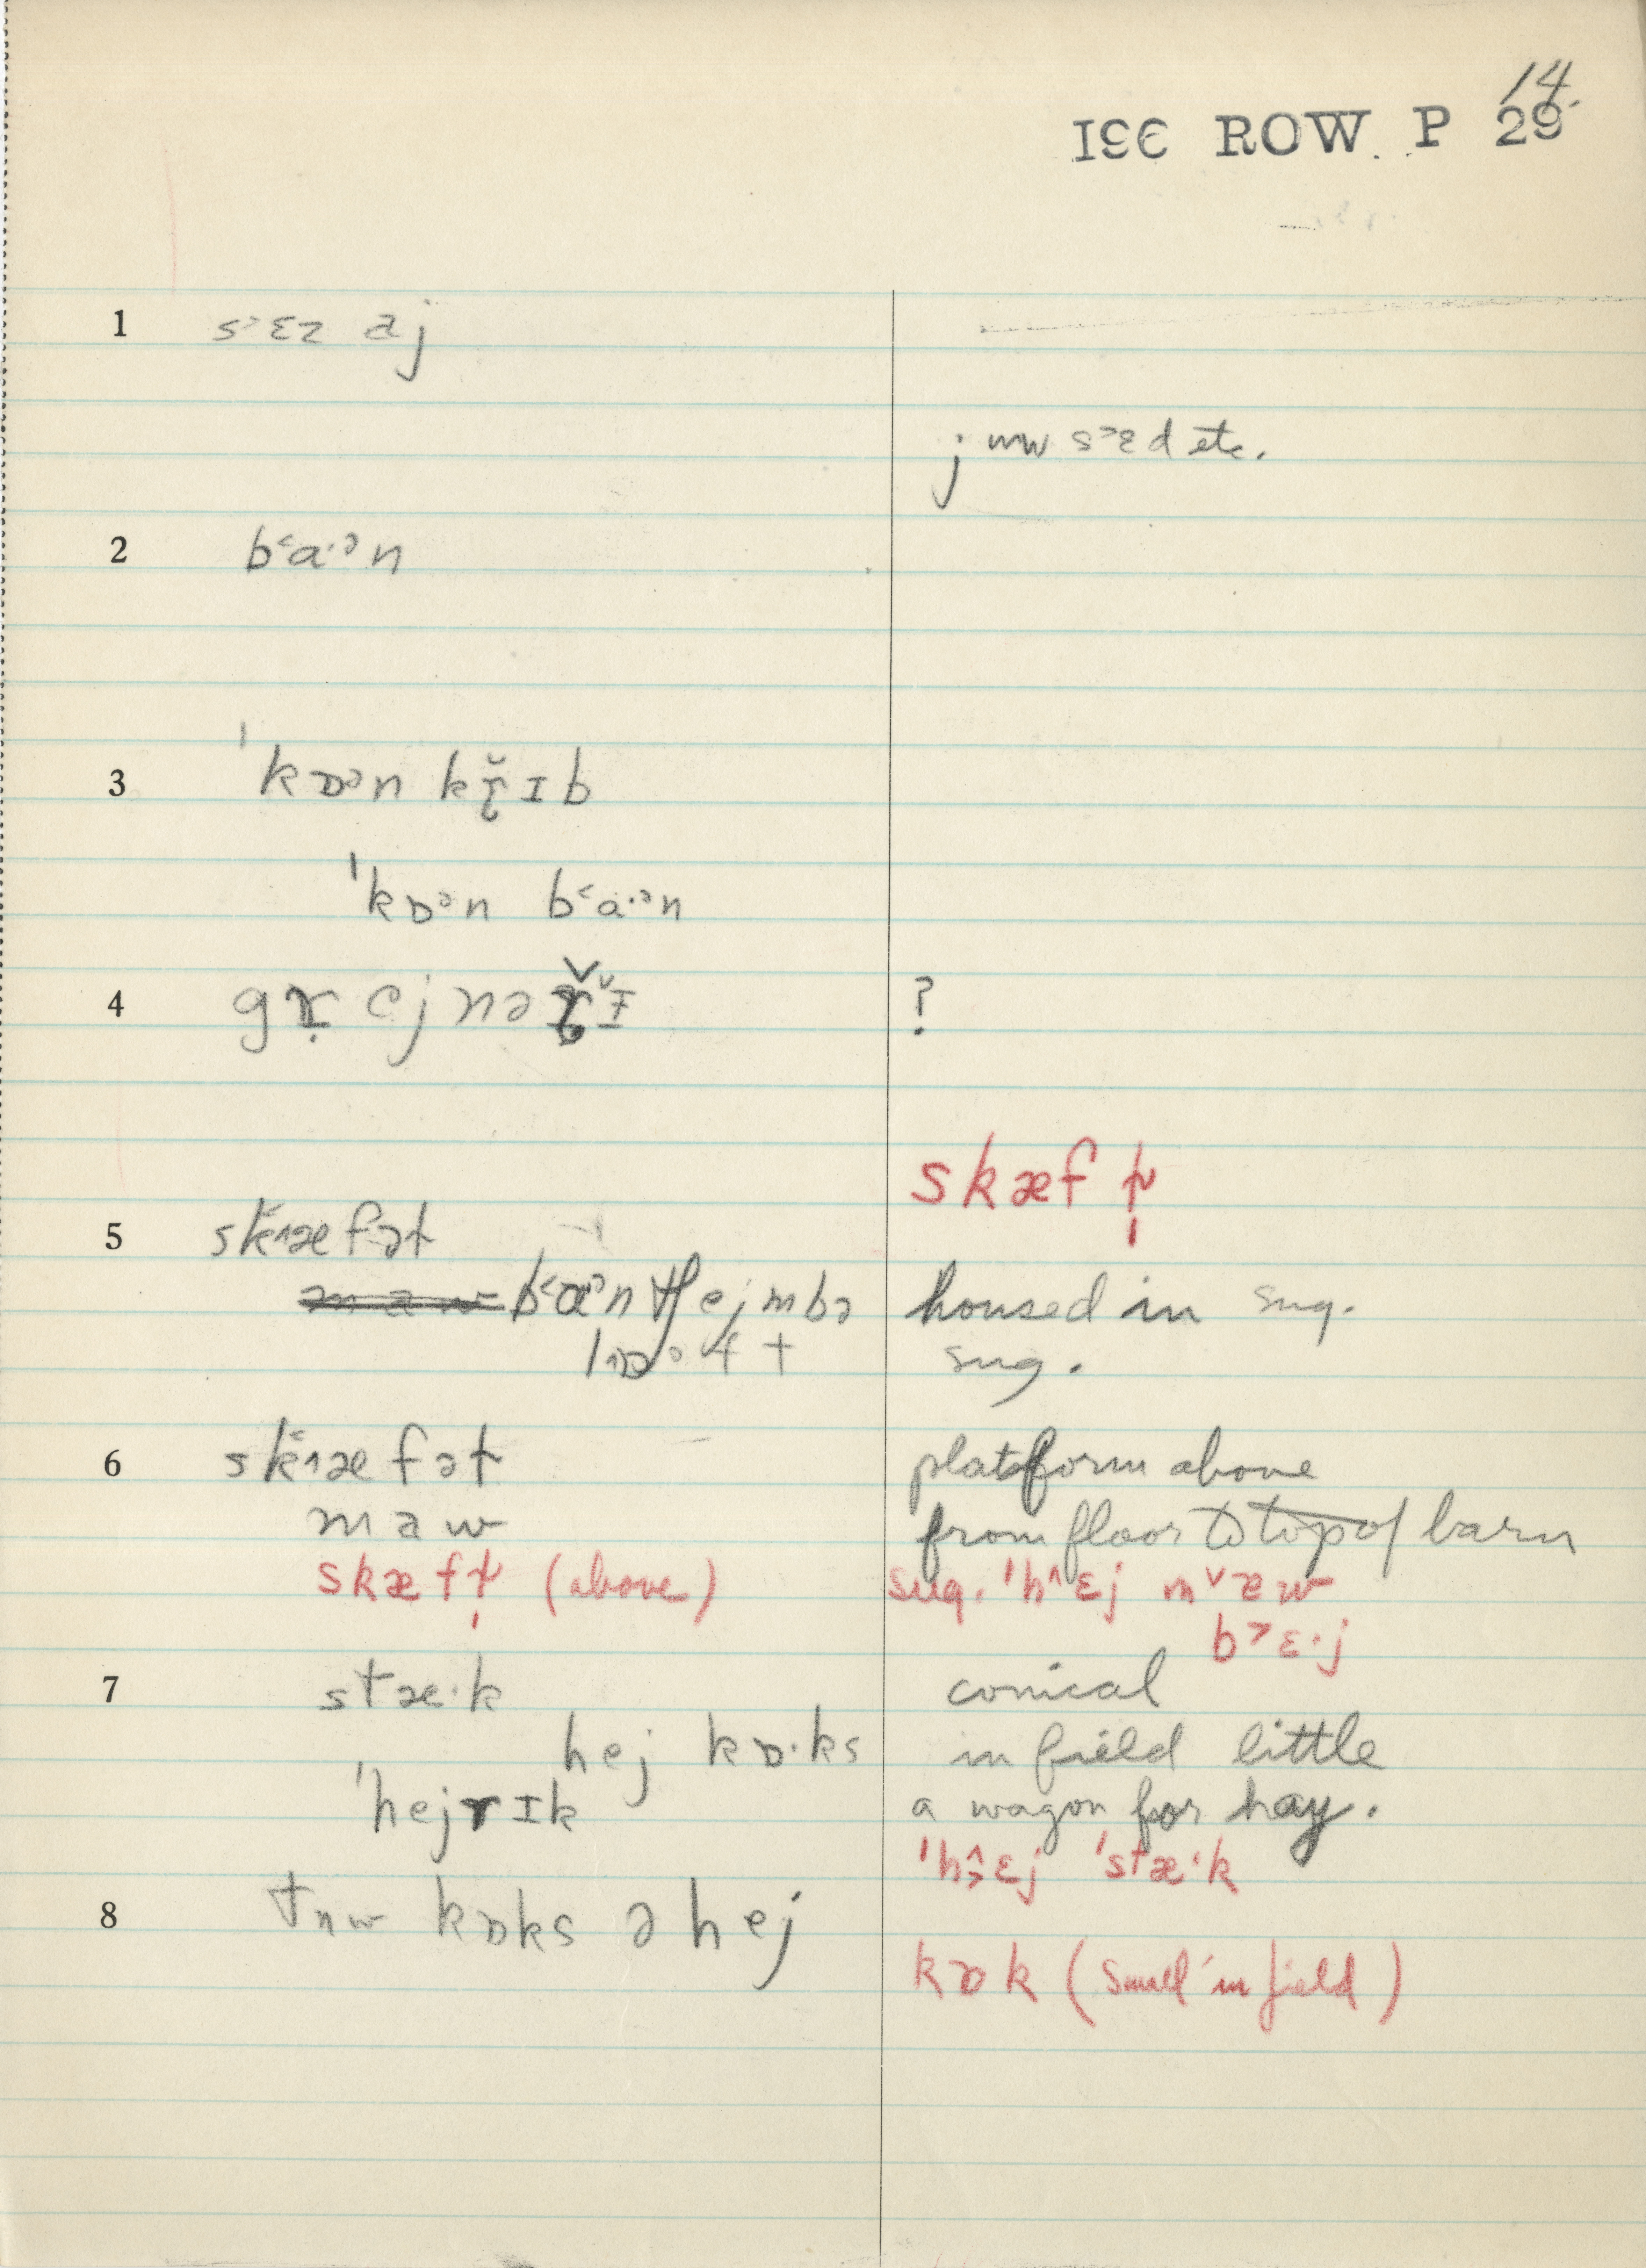 14.
391 ROW P 29
1 s˃ɛz aj
j ʉw s˃ɛd etc.
2 b˂a·ᵊn
3 ˈkɒᵊn kɽ̆ɪb
ˈkɒᵊn b˂a·ᵊn
4 gɽ ej nə ɪ ?
skæf
5 sk˂æfət
b˂aᵊn tʃejmbə housed in sug.
lɒft sug.
6 sk˂æfət platform above
maw from floor to top of barn
skæf (above) sug. ˈh^ɛj m˅æw
b˃ɛ·j
7 stæ·k conical
hej kɒ·ks in field little
ˈhejrɪk a wagon for hay.
ˈhɛj ˈstæ·k
8 tʉw kɒks ə hej
kɒk (small in field)